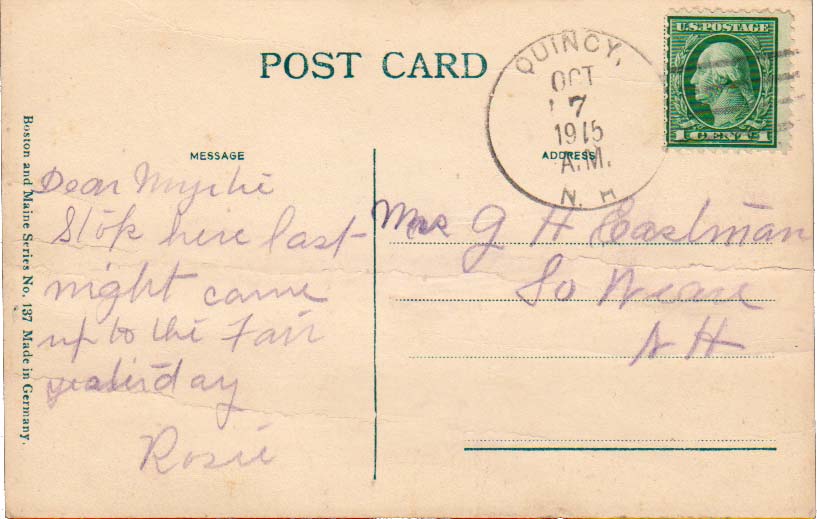 POST CARD
QUINCY,
OCT
7
1915
A.M.
N. H
U.S. POSTAGE
1 CENT 1
MESSAGE
ADDRESS
Dear Myrtie
Slōp here last
night came
up to the Fair
yesterday
Rosie
Mrs G H Eastman
So Weare
N H
Boston and Maine Series No. 137 Made in Germany.